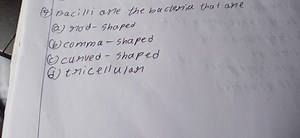 (4) Bacilli are the bacteria that are
(a) rod - shaped
(b) comma - shaped
(c) curved - shaped
(d) tricellular